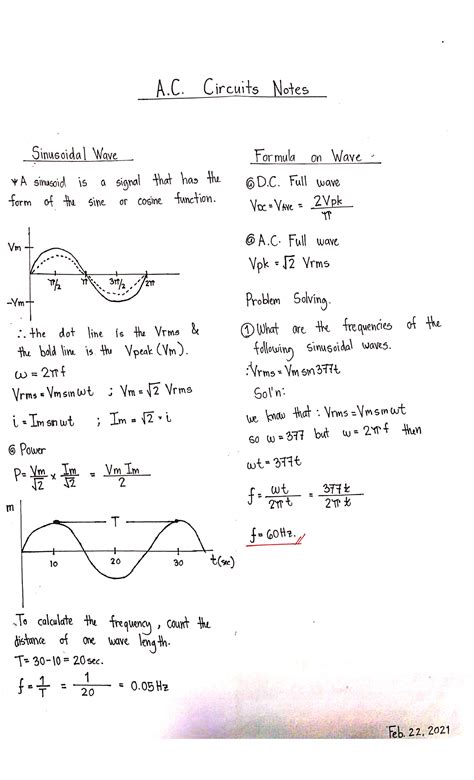 A.C. Circuits Notes
Sinusoidal Wave
* A sinusoid is a signal that has the
form of the sine or cosine function.
Vm
π/2 π 3π/2 2π
-Vm
∴ the dot line is the Vrms &
the bold line is the Vpeak (Vm).
ω = 2πf
Vrms = Vm sin ωt ; Vm = √2 Vrms
i = Im sin ωt ; Im = √2 · i
⊚ Power
P = Vm/√2 × Im/√2 = Vm Im/2
m
T
10 20 30 t(sec)
To calculate the frequency, count the
distance of one wave length.
T = 30-10 = 20 sec.
f = 1/T = 1/20 = 0.05 Hz
Formula on Wave -
⊚ D.C. Full wave
VDC = VAVE = 2Vpk/π
⊚ A.C. Full wave
Vpk = √2 Vrms
Problem Solving.
① What are the frequencies of the
following sinusoidal waves.
∴ Vrms = Vm sin 377t
Sol'n:
we know that : Vrms = Vm sm ωt
so ω = 377 but ω = 2πf then
ωt = 377t
f = ωt/2πt = 377t/2πt
f = 60Hz.
Feb. 22, 2021